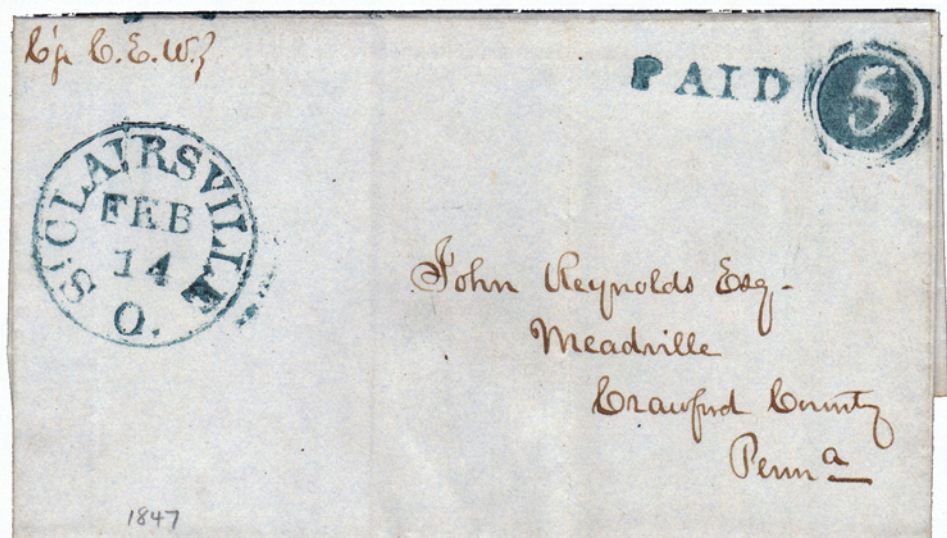 C. E. W.
PAID 5
St CLAIRSVILLE
FEB
14
O.
John Reynolds Esq-
Meadville
Crawford County
Penna
1847